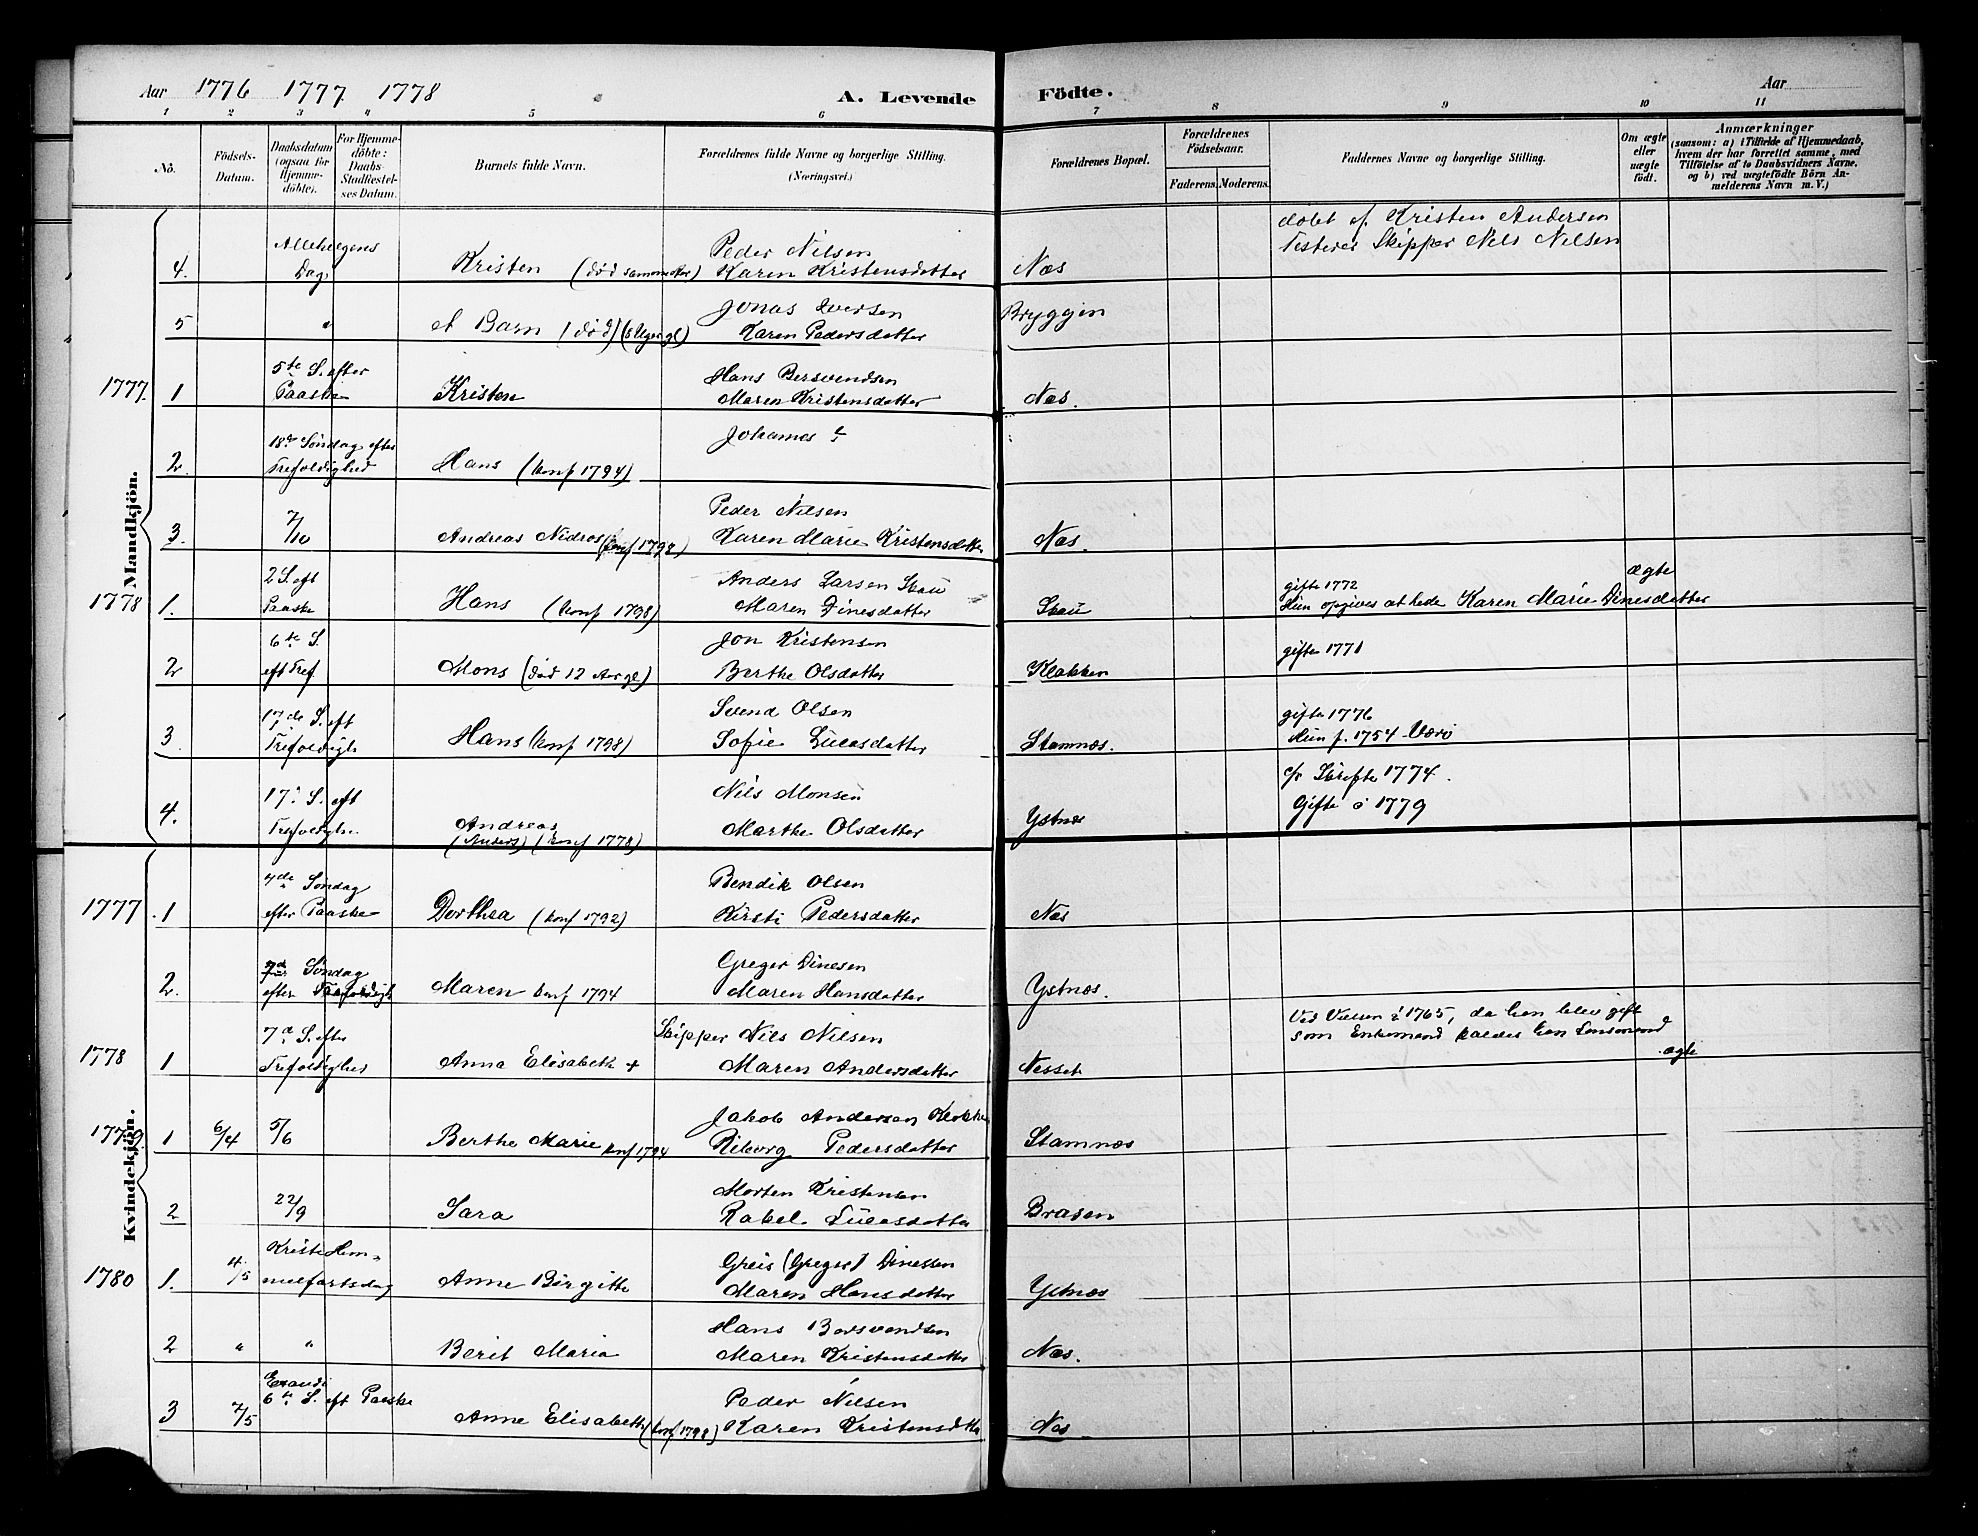 Aar 1776 1777 1778 A. Levende Födte. Aar
1 2 3 4 5 6 7 8 9 10 11
No. Födsels-Datum. Daabsdatum (ogsaa for Hjemmedöbte). For Hjemmedöbte: Daabs Stadfæstelses Datum. Barnets fulde Navn. Forældrenes fulde Navne og borgerlige Stilling. (Næringsvei.) Forældrenes Bopæl. Forældrenes Födselsaar. Faderens. Moderens. Faddernes Navne og borgerlige Stilling. Om ægte eller uægte födt. Anmærkninger (saasom: a) i Tilfælde af Hjemmedaab, hvem der har forrettet samme, med Tilföielse af to Daabsvidners Navne, og b) ved uægtefödte Börn Anmelderens Navn m. V.)
Mandkjön.
Peder Nilsen døbt af Kristen Andersen
4. Allehelgens Dag Kristen (død samme Aar) Karen Kristensdatter Næs Testeres Skipper Nels Nelsen
Jonas Iversen
5 " et Barn (død) Karen Pedersdatter Bryggen
1777. 5te S. efter Hans Bersvendsen
1 Paaske Kristen Maren Kristensdatter Næs.
18de Søndag efter Johannes
2. Trefoldighed Hans (konf 1794)
Peder Nilsen
3. 7/10 Andreas Nidros (konf 1792) Karen Marie Kristensdatter Næs.
1778 2 S. eft Anders Larsen Skau gifte 1772 ægte
1. Paaske Hans (konf 1798) Maren Dinesdatter Skau Hun opgives at hede Karen Marie Dinesdatter
6te S. Jon Kristensen gifte 1771
2 eft Tref. Mons (død 12 Aar gl) Berthe Olsdatter Klakken
17de S. eft Svend Olsen gifte 1776
3. Trefoldigh Hans (konf 1798) Sofie Lucasdatter Stamnæs. Hun f. 1754
17. S. eft Nils Monsen Skifte 1774.
4. Trefoldigh. Andreas (Anders) (konf 1778) Marthe Olsdatter Ystnes Gifte i 1779
Kvindekjön.
1777 4de Søndag Bendik Olsen
1 efter Paaske Dorthea (konf 1792) Kirsti Pedersdatter Næs
7d Søndag Greger Dinesen
2. efter Trefoldigh Maren konf 1794 Maren Hansdatter Ystnæs.
1778 7d S. efter Skipper Nils Nilsen Ved Vielsen i 1765, da han blev gift
1 Trefoldighed Anna Elisabeth + Maren Andersdatter Nesset som Enkemand kaldes han Lensmand ægte
Jakob Andersen Klokker
1779 1 6/4 5/6 Berthe Marie konf 1794 Riborg Pedersdatter Stamnæs
Morten Kristensen
2 22/9 Sara Rakel Lucasdatter Brasen
1780 Kristi Him- Greis (Greger) Dinessen
1. 4/5 melfartsdag Anne Birgitte Maren Hansdatter Ystnæs
Hans Bersvendsen
2 " " Berit Maria Maren Kristensdatter Næs.
Exaudi
6te S. eft Paaske Peder Nilsen
3 7/5 Anne Elisabeth (konf 1798) Karen Kristensdtter Næs